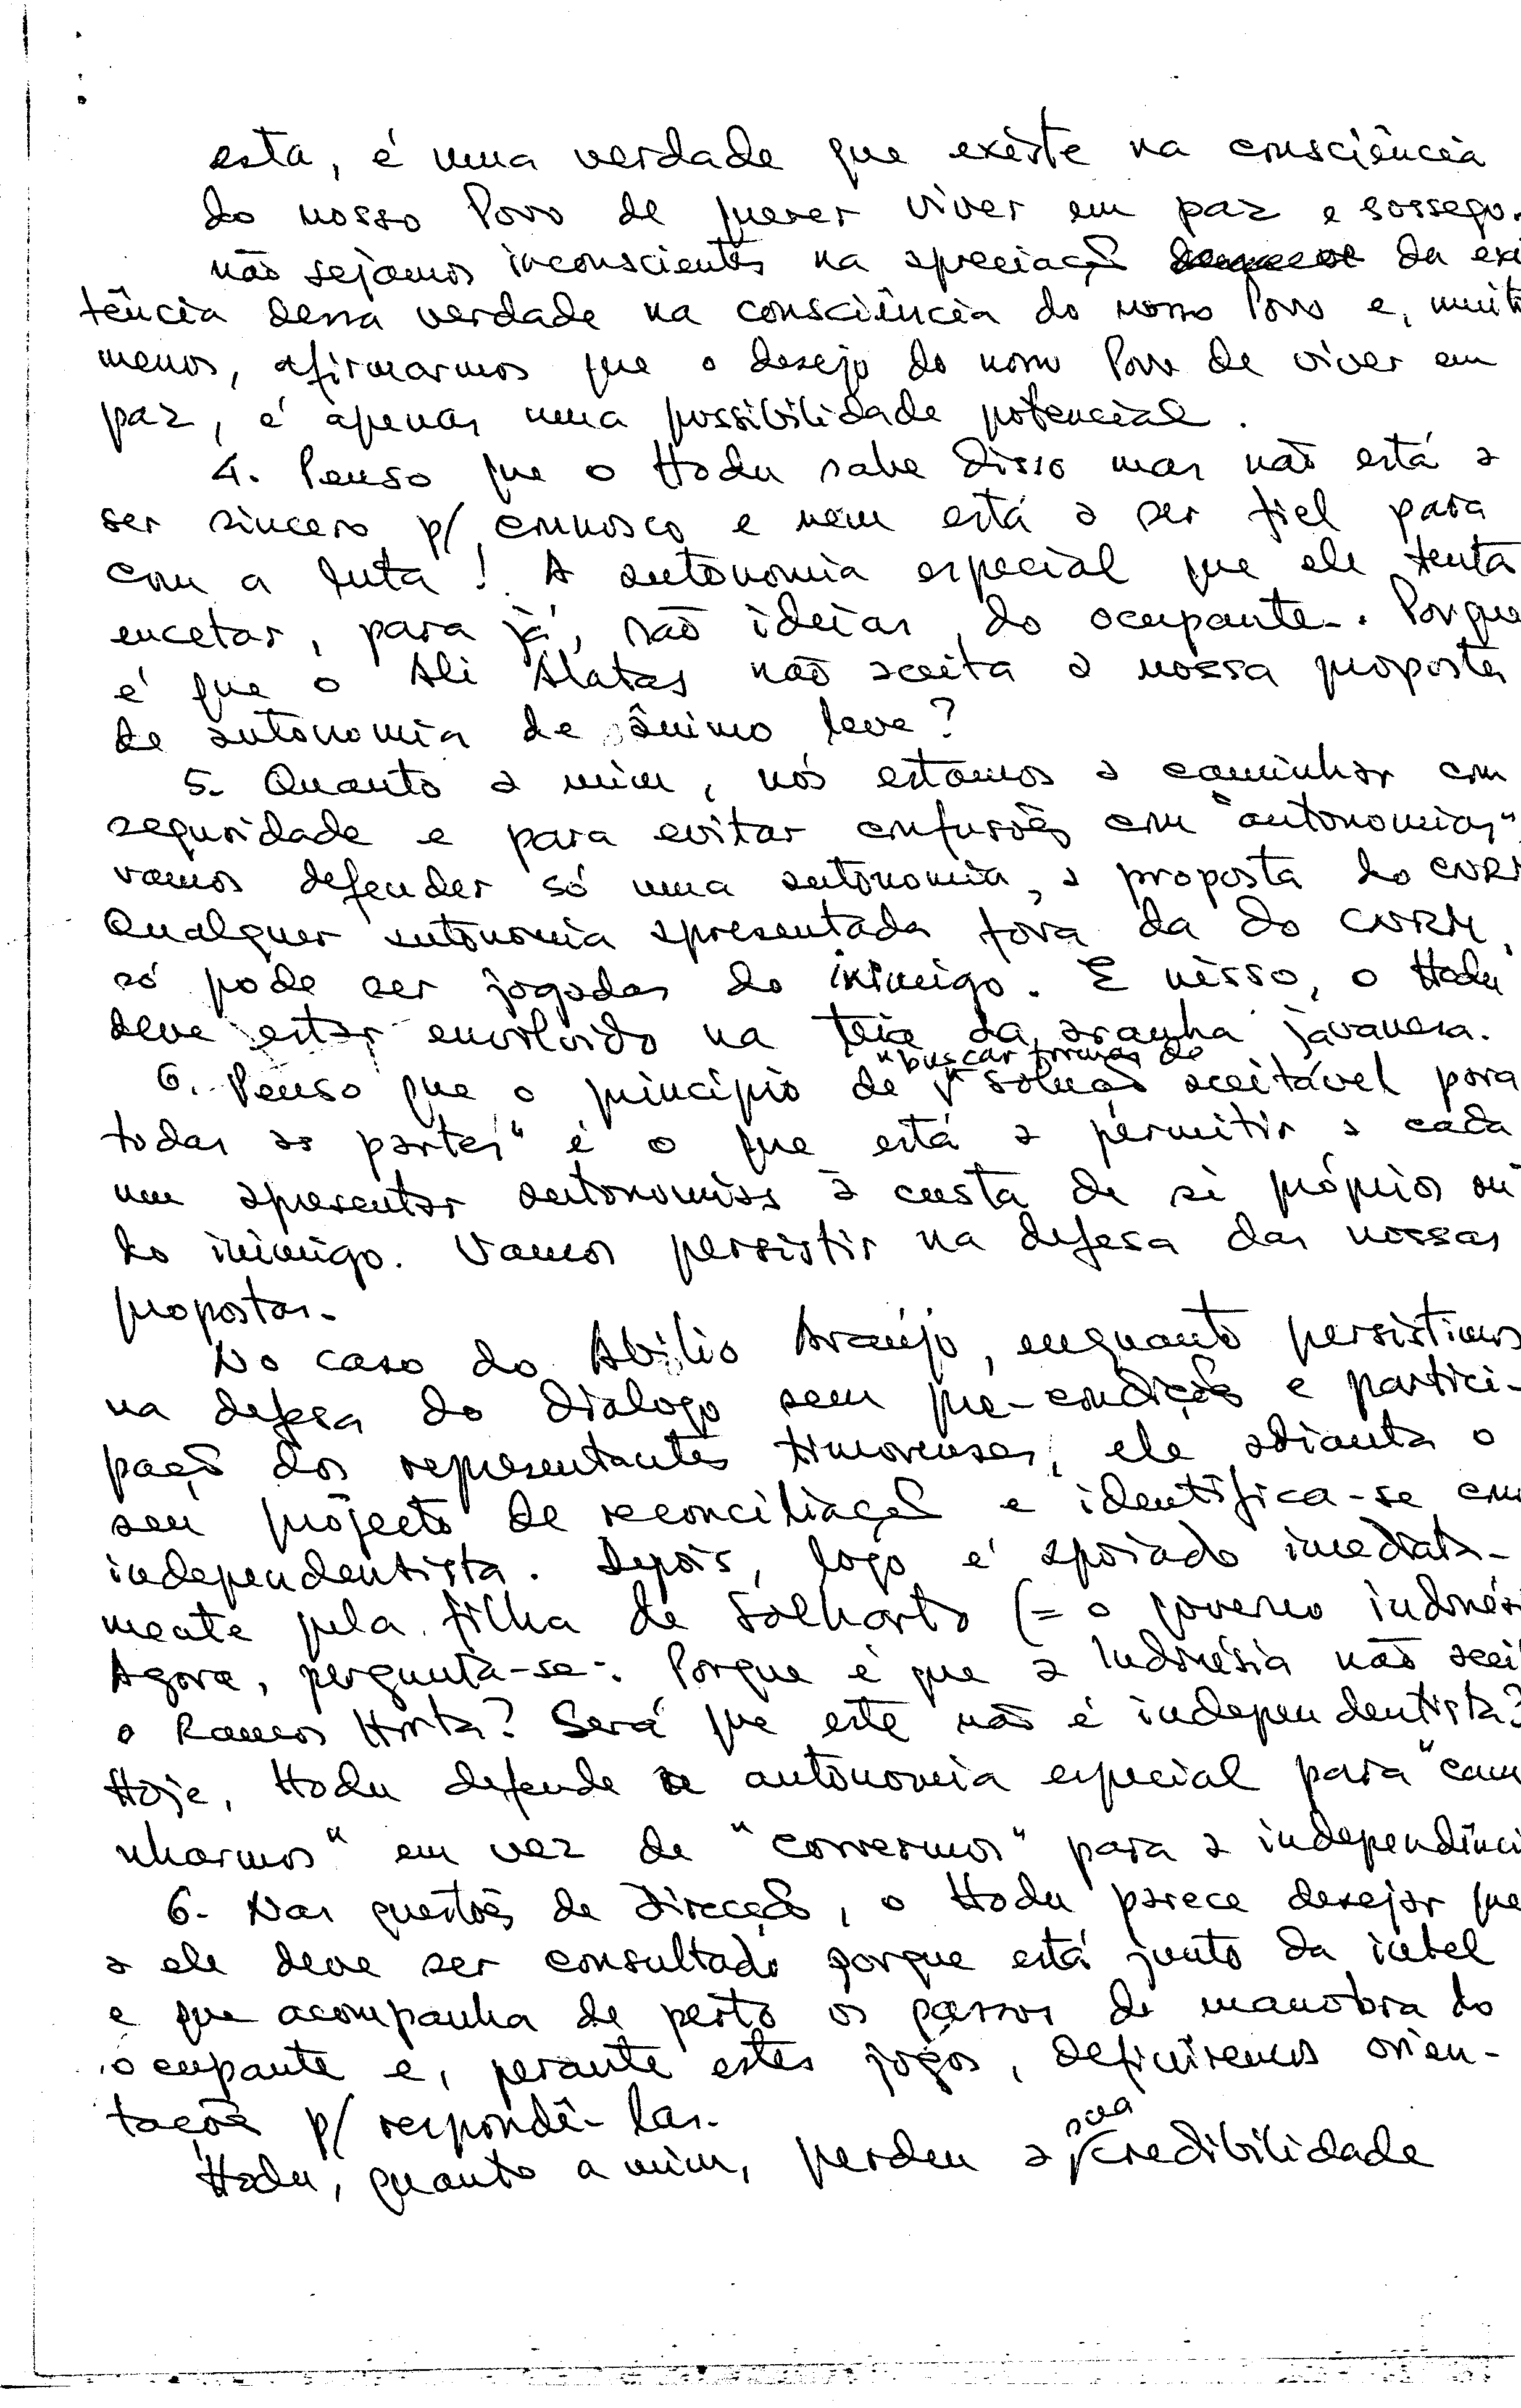 esta, é uma verdade que existe na consciência
do nosso Povo de querer viver em paz e sossego.
não sejamos inconscientes na apreciação da exi
tência dessa verdade na consciência do nosso Povo e, muito
menos, afirmarmos que o desejo do nosso Povo de viver em
paz, é apenas uma possibilidade potencial.
4. Penso que o Hodu sabe disso mas não está a
ser sincero p/ connosco e nem está a ser fiel para
com a luta! A autonomia especial que ele tenta
encetar, para já, são ideias do ocupante. Porque
é que o Ali Alatas não aceita a nossa proposta
de autonomia de ânimo leve?
5. Quanto a mim, nós estamos a caminhar com
seguridade e para evitar confusões com "autonomias"
vamos defender só uma autonomia, a proposta do CNRM
Qualquer autonomia apresentada fora da do CNRM,
só pode ser jogadas do inimigo. E nisso, o Hodu
deve estar envolvido na teia da aranha javanesa.
6. Penso que o princípio de "buscar formas de solução aceitável para
todas as partes" é o que está a permitir a cada
um apresentar autonomias à custa de si próprios ou
do inimigo. Vamos persistir na defesa das nossas
propostas.
No caso do Abílio Araújo, enquanto persistimos
na defesa do diálogo sem pré-condições e partici-
pação dos representantes timorenses, ele adianta o
seu projecto de reconciliação e identifica-se com
independentista. Depois, logo é apoiado imediata-
mente pela filha de Soeharto (= o governo indonési
Agora, pergunta-se: Porque é que a Indonésia não acei
o Ramos Horta? Será que este não é independentista?
Hoje, Hodu defende a autonomia especial para "cami
nharmos" em vez de "corrermos" para a independênci
6. Nas questões de direcção, o Hodu parece desejar que
a ele deve ser consultado porque está junto da intel
e que acompanha de perto os passos de manobra do
ocupante e, perante estes jogos, definiremos orien-
tações p/ respondê-las.
Hodu, quanto a mim, perdeu a sua credibilidade